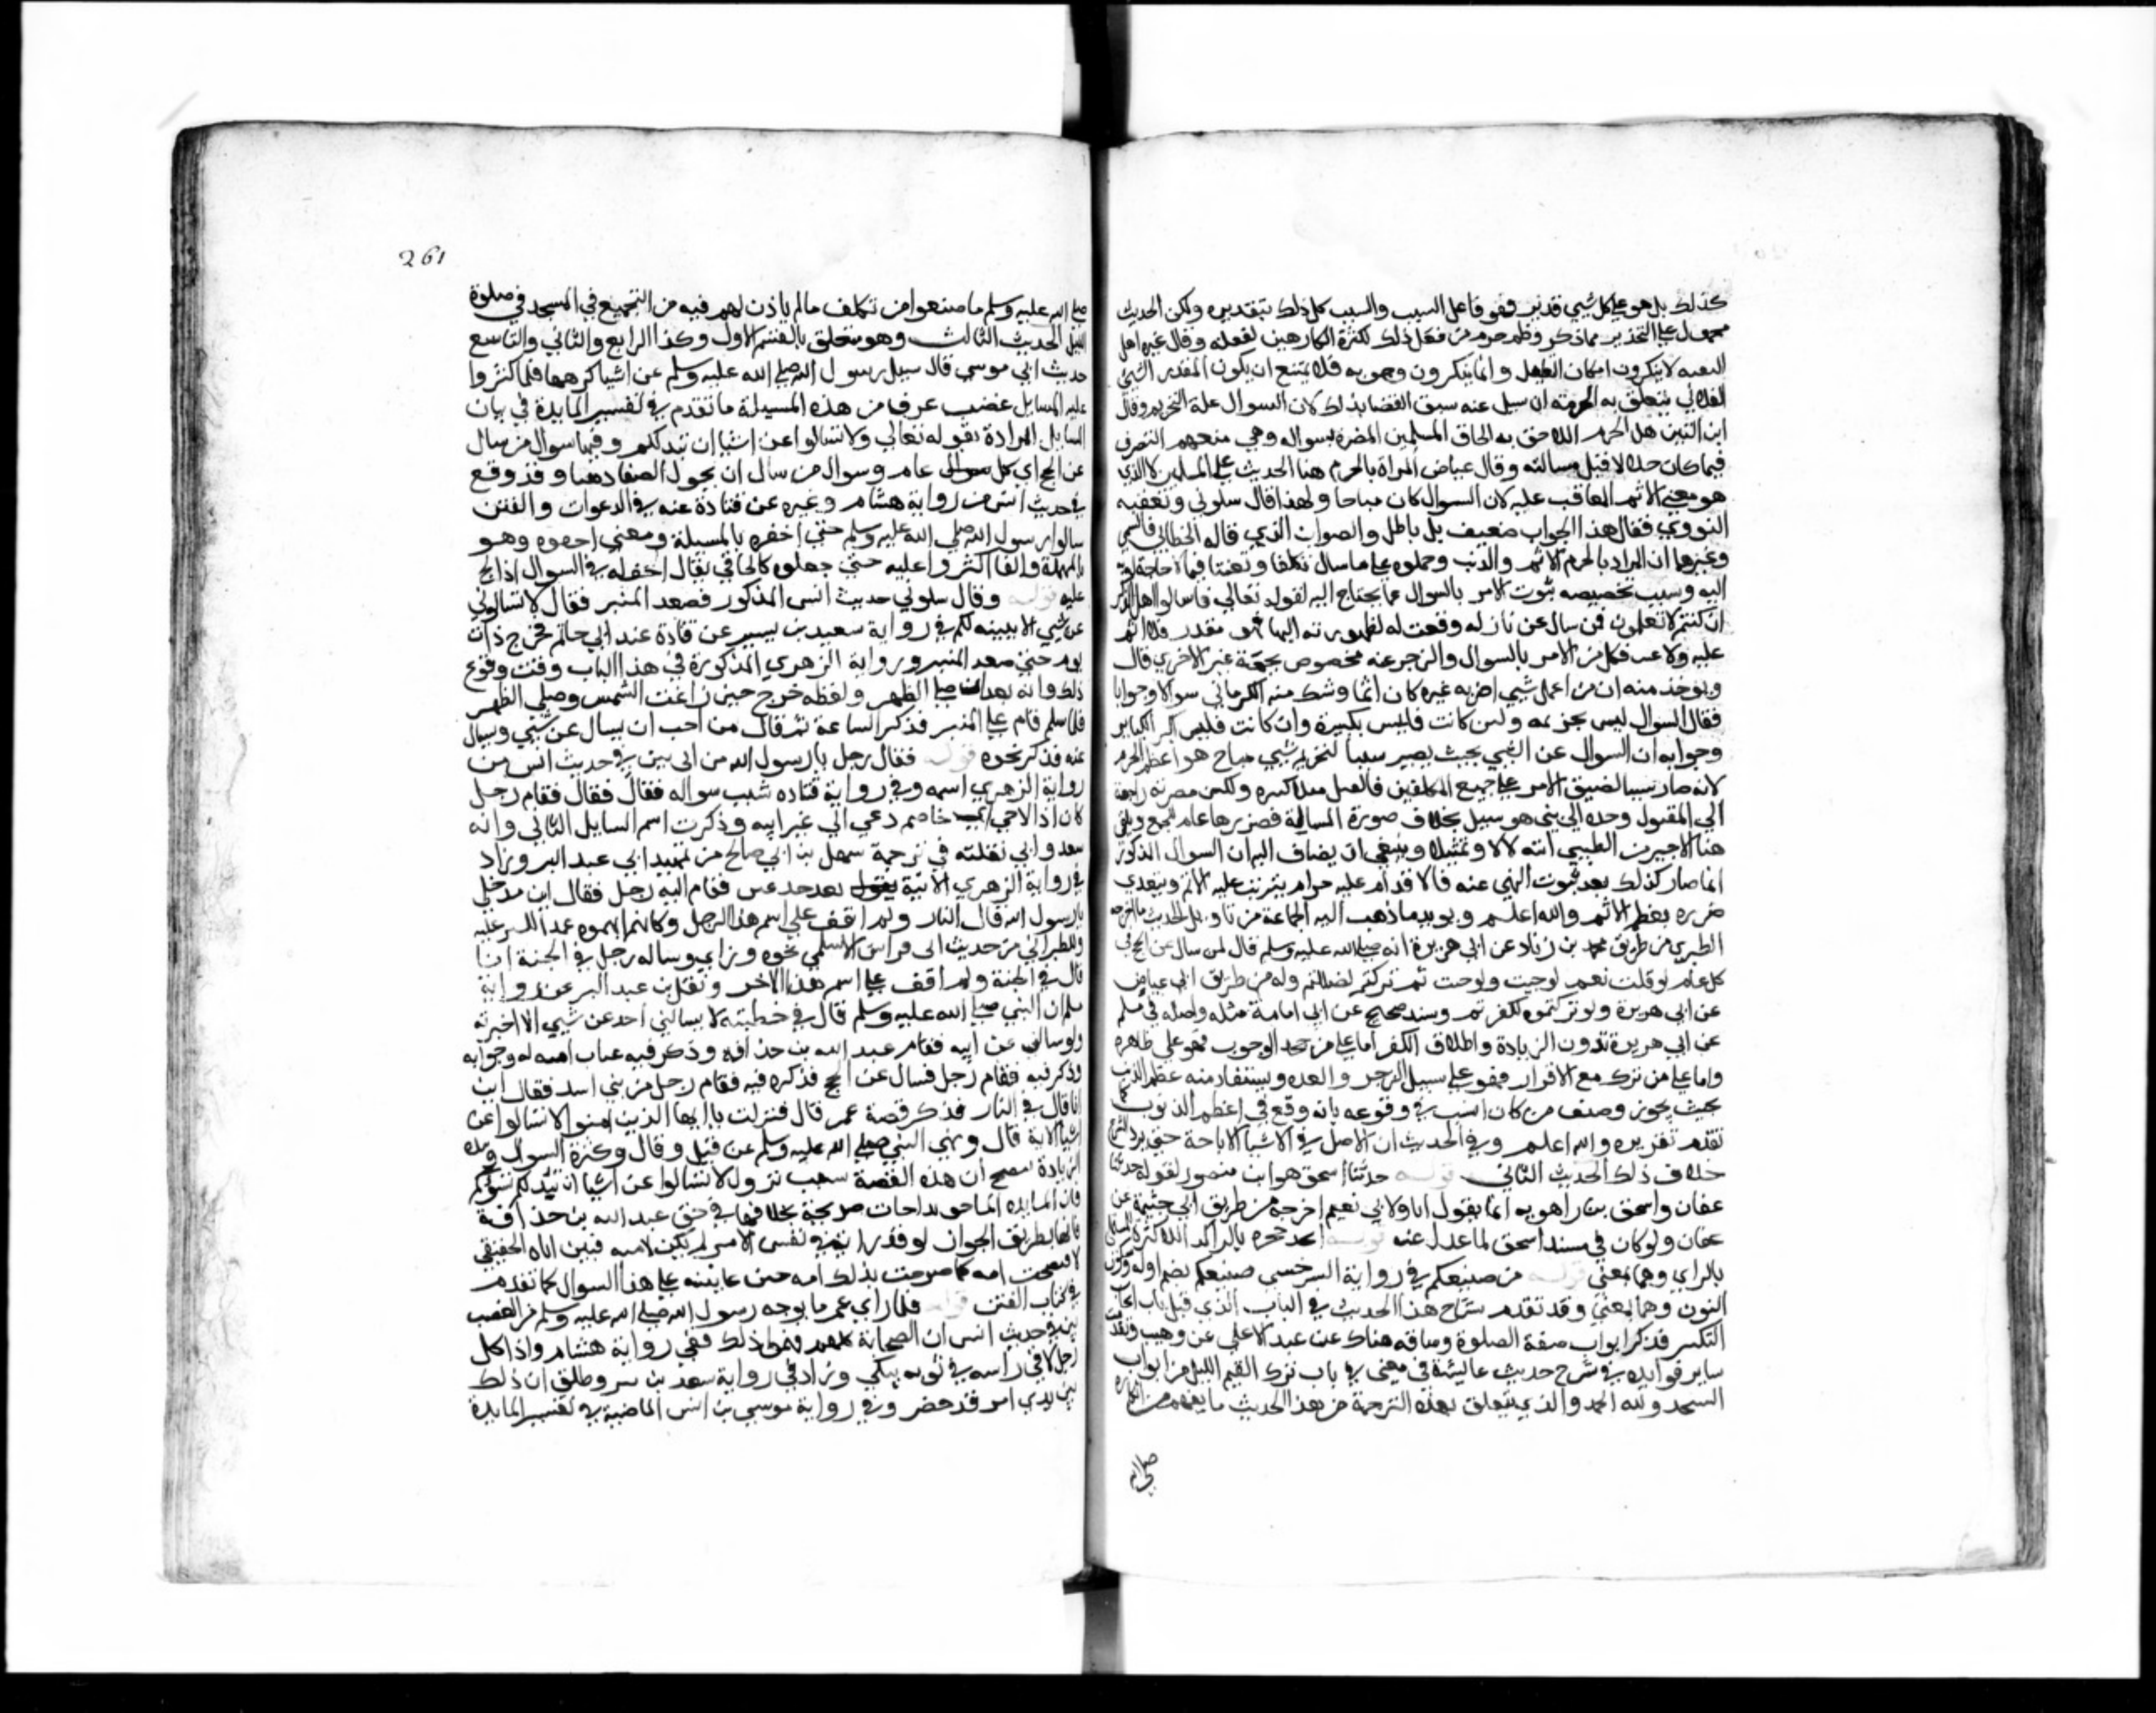 كذلك بل هو على كل شيي قدير فهو فاعل السبب والمسبب كل ذلك بتقديره ولكن الحديث
محمول على التحذير مما ذكر وظم حرم من فعل ذلك لكثرة الكارهين لفعله وقال غيره اهل
السنه لا ينكرون امكان التعليل وانما ينكرون وجوبه فلا يمتنع ان يكون المقدر الشيئ
الفلاني يتعلق به الحرمة ان سيل عنه سبق القضا بذلك لان السوال علة التحريم وقال
ابن التين قيل الجرم اللاحق به الحاق المسلمين المضرة بسواله وهي منعهم التصرف
فيما كان حلالا قبل مسالته وقال عياض المراة بالجرم هنا الحديث على المسلمين لا الذي
هو معنى الاثم المعاقب عليه لان السوال كان مباحا ولهذا قال سلوني وتعقبه
النووي فقال هذا الجواب ضعيف بل باطل والصواب الذي قاله الخطابي والتيمي
وغيرهما ان المراد بالجرم الاثم والذنب وحملوه على ما سال تكلفا وتعنتا فيما لا حاجة له به
اليه وسبب تخصيصه ثبوت الامر بالسوال عما يحتاج اليه لقوله تعالى فاسالوا اهل الذكر
ان كنتم لا تعلمون فمن سال عن نازله وقعت له لضرورته اليها فهو مقدر فلا اثم
عليه ولا عتب فكل من الامر بالسوال والزجر عنه مخصوص بجهة غير الاخرى قال
ويوخذ منه ان من اعمل شيي اضر به غيره كان اثما وشك منه الكرماني سوالا وجوابا
فقال السوال ليس بجرمه ولين كانت فليس بكبيرة وان كانت فليس اكبر الكباير
وجوابه ان السوال عن الشيي بحيث يصير سببا لتحريم شيي مباح هو اعظم الجرم
لانه صار سببا لضيق الامر على جميع المكلفين فالقتل مثلا كبيره ولكن مضرته راجعة
الى المقتول وحده الى من هو سبيل بخلاف صورة المسالة فضررها عام للجميع وتلقى
هذا الاخير من الطيبي استدلالا وتمثيلا وينبغي ان يضاف اليه ان السوال المذكور
انما صار كذلك بعد ثبوت النهي عنه فالاقدام عليه حرام يترتب عليه الاثم ويتعدى
ضرره بعظم الاثم والله اعلم ويويد ما ذهب اليه الجماعة من تاويل الحديث ما اخرجه
الطبري من طريق محمد بن زياد عن ابي هريرة انه صلى الله عليه وسلم قال لمن سال عن الحج في
كل عام لو قلت نعم لوجبت ولو وجبت ثم تركتم لضللتم وله من طريق ابي عياض
عن ابي هريرة ولو تركتموه لكفرتم وبسند صحيح عن ابي امامة مثله واصله في مسلم
عن ابي هريرة بدون الزيادة واطلاق الكفر اما على من جحد الوجوب فهو على ظاهره
واما على من ترك مع الاقرار فهو على سبيل الزجر والتغليظ ويستفاد منه عظم الذنب
بحيث يجوز وصف من كان السبب في وقوعه بانه وقع في اعظم الذنوب كما
تقدم تقريره والله اعلم وفي الحديث ان الاصل في الاشيا الاباحة حتى يرد الشرع
خلاف ذلك الحديث الثاني قوله حدثنا اسحق هو ابن منصور لقوله حدثنا
عفان واسحق بن راهويه انما يقول انا ولابي نعيم اخرجه من طريق ابي خيثمة عن
عفان ولو كان في مسند اسحق لما عدل عنه قوله اتخذ حجره بالراء
بالزاي وهما بمعنى قوله من صنيعكم في رواية السرخسي صنعكم بضم اوله وسكون
النون وهما بمعنى وقد تقدم شرح هذا الحديث في الباب الذي قبل باب ايجاب
التكبير فذكر ابواب صفة الصلوة وساقه هناك عن عبد الاعلى عن وهيب وتقدمت
ساير فوايده في شرح حديث عايشة في معنى في باب ترك القيم الليل من ابواب
التهجد ولله الحمد والذي يتعلق بهذه الترجمة من هذا الحديث ما يفهم من انكاره
صلى الله
261
صلى الله عليه وسلم ما صنعوا من تكلف ما لم ياذن لهم فيه من التجميع في المسجد في صلوة
الليل الحديث الثالث وهو متعلق بالقسم الاول وكذا الرابع والثاني والتاسع
حديث ابي موسى قال سيل رسول الله صلى الله عليه وسلم عن اشيا كرهها فلما اكثروا
عليه المسايل غضب عرف من هذه المسيلة ما تقدم في تفسير المايدة في بيان
المسايل المرادة بقوله تعالى ولا تسالوا عن اشيا ان تبد لكم وفيها سوال من سال
عن الحج اي كل عام وسوال من سال ان يحول الصفا ذهبا وقد وقع
في حديث انس من رواية هشام وغيره عن قتادة عنه في الدعوات والفتن
سالوا رسول الله صلى الله عليه وسلم حتى احفوه بالمسيلة ومعنى احفوه وهو
بالمهملة والفا اكثروا عليه حتى جعلوه كالحافي يقال احفاه في السوال اذا الح
عليه قوله وقال سلوني حديث انس المذكور فصعد المنبر فقال لا تسالوني
عن شيي الا بينته لكم في رواية سعيد بن بشير عن قتادة عند ابي حاتم فخرج ذات
يوم حتى صعد المنبر ورواية الزهري المذكورة في هذا الباب وقت وقوع
ذلك وانه بعد ان صلى الظهر ولفظه خرج حين زاغت الشمس وصلى الظهر
فلما سلم قام على المنبر فذكر الساعة ثم قال من احب ان يسال عن شيي وليسال
عنه فذكر نحوه قوله فقال رجل يا رسول الله من ابي بين في حديث انس من
رواية الزهري اسمه وفي رواية قتاده سبب سواله فقال فقام رجل
كان اذا لاحى خاصم دعي الى غير ابيه وذكرت اسم السايل الثاني وانه
سعد واني نقلته في ترجمة سهيل بن ابي صالح من تمهيد ابي عبد البر وزاد
في رواية الزهري الاتية فقام اليه رجل فقال اين مدخلي
يا رسول الله قال النار ولم اقف على اسم هذا الرجل وكانهم ابهموه عمدا للستر عليه
وللطبراني من حديث ابي فراس الاسلمي نحوه وزاد وساله رجل في الجنة انا
قال في الجنة ولم اقف على اسم هذا الاخر ونقل بن عبد البر عن رواية
مسلم ان النبي صلى الله عليه وسلم قال في خطبته لا يسالني احد عن شيي الا اخبرته
ولو سالني عن ابيه فقام عبد الله بن حذافه وذكر فيه عتاب امه له وجوابه
وذكر فيه فقام رجل فسال عن الحج فذكره فيه فقام رجل من بني اسد فقال اين
انا قال في النار فذكر قصة عمر قال فنزلت يا ايها الذين امنوا لا تسالوا عن
اشيا الاية قال ونهى النبي صلى الله عليه وسلم عن قيل وقال وكثرة السوال وبهذه
الزيادة يتضح ان هذه القصة سبب نزول لا تسالوا عن اشيا ان تبد لكم تسوكم
فان المساءة صريحة بخلافها في حق عبد الله بن حذافة
فانها بطريق الجواز لو قدر انه في نفس الامر لم يكن لابيه فبين اباه الحقيقي
لافتضحت امه كما صرحت بذلك امه حين عاتبته على هذا السوال كما تقدم
في كتاب الفتن قوله فلما راى عمر ما بوجه رسول الله صلى الله عليه وسلم من الغضب
بين في حديث انس ان الصحابة فهموا ذلك ففي رواية هشام واذا كل
رجل لاف راسه في ثوبه يبكي وزاد في رواية سعيد بن بشير وظنوا ان ذلك
بين يدي امر قد حضر وفي رواية موسى بن انس الماضية في تفسير المايدة